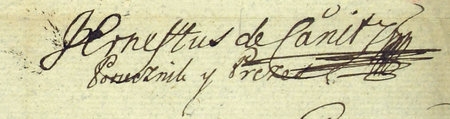 JErnestus de Canitz
Porucznik y Prezes